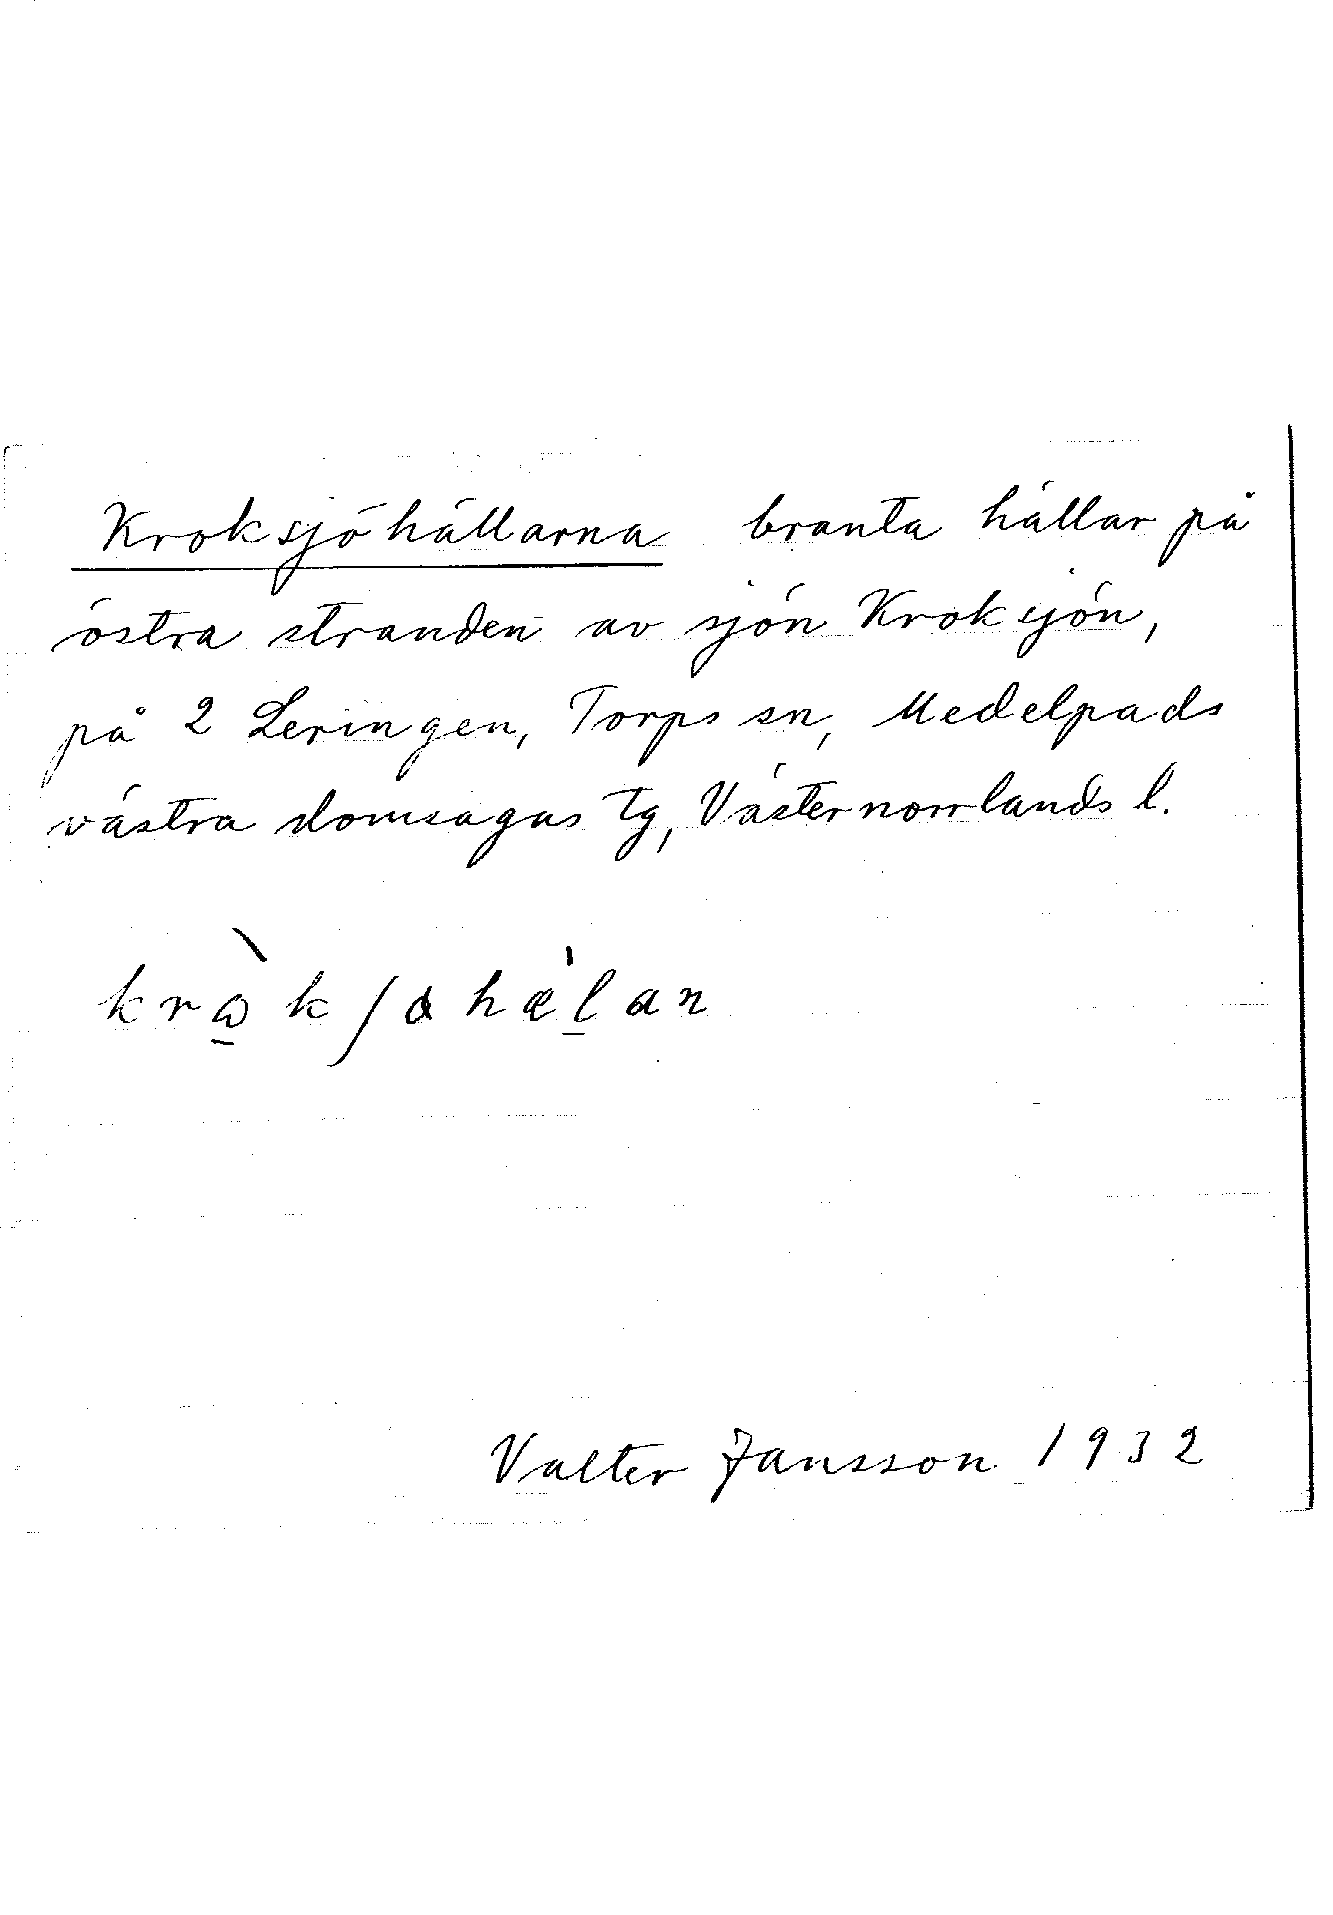 Kroksjöhällarna branta hällar på
östra stranden av sjön Kroksjön,
på 2 Leringen, Torps sn, Medelpads
västra domsagas tg, Västernorrlands l.
krωkʃɷhælan
Valter Jansson 1932